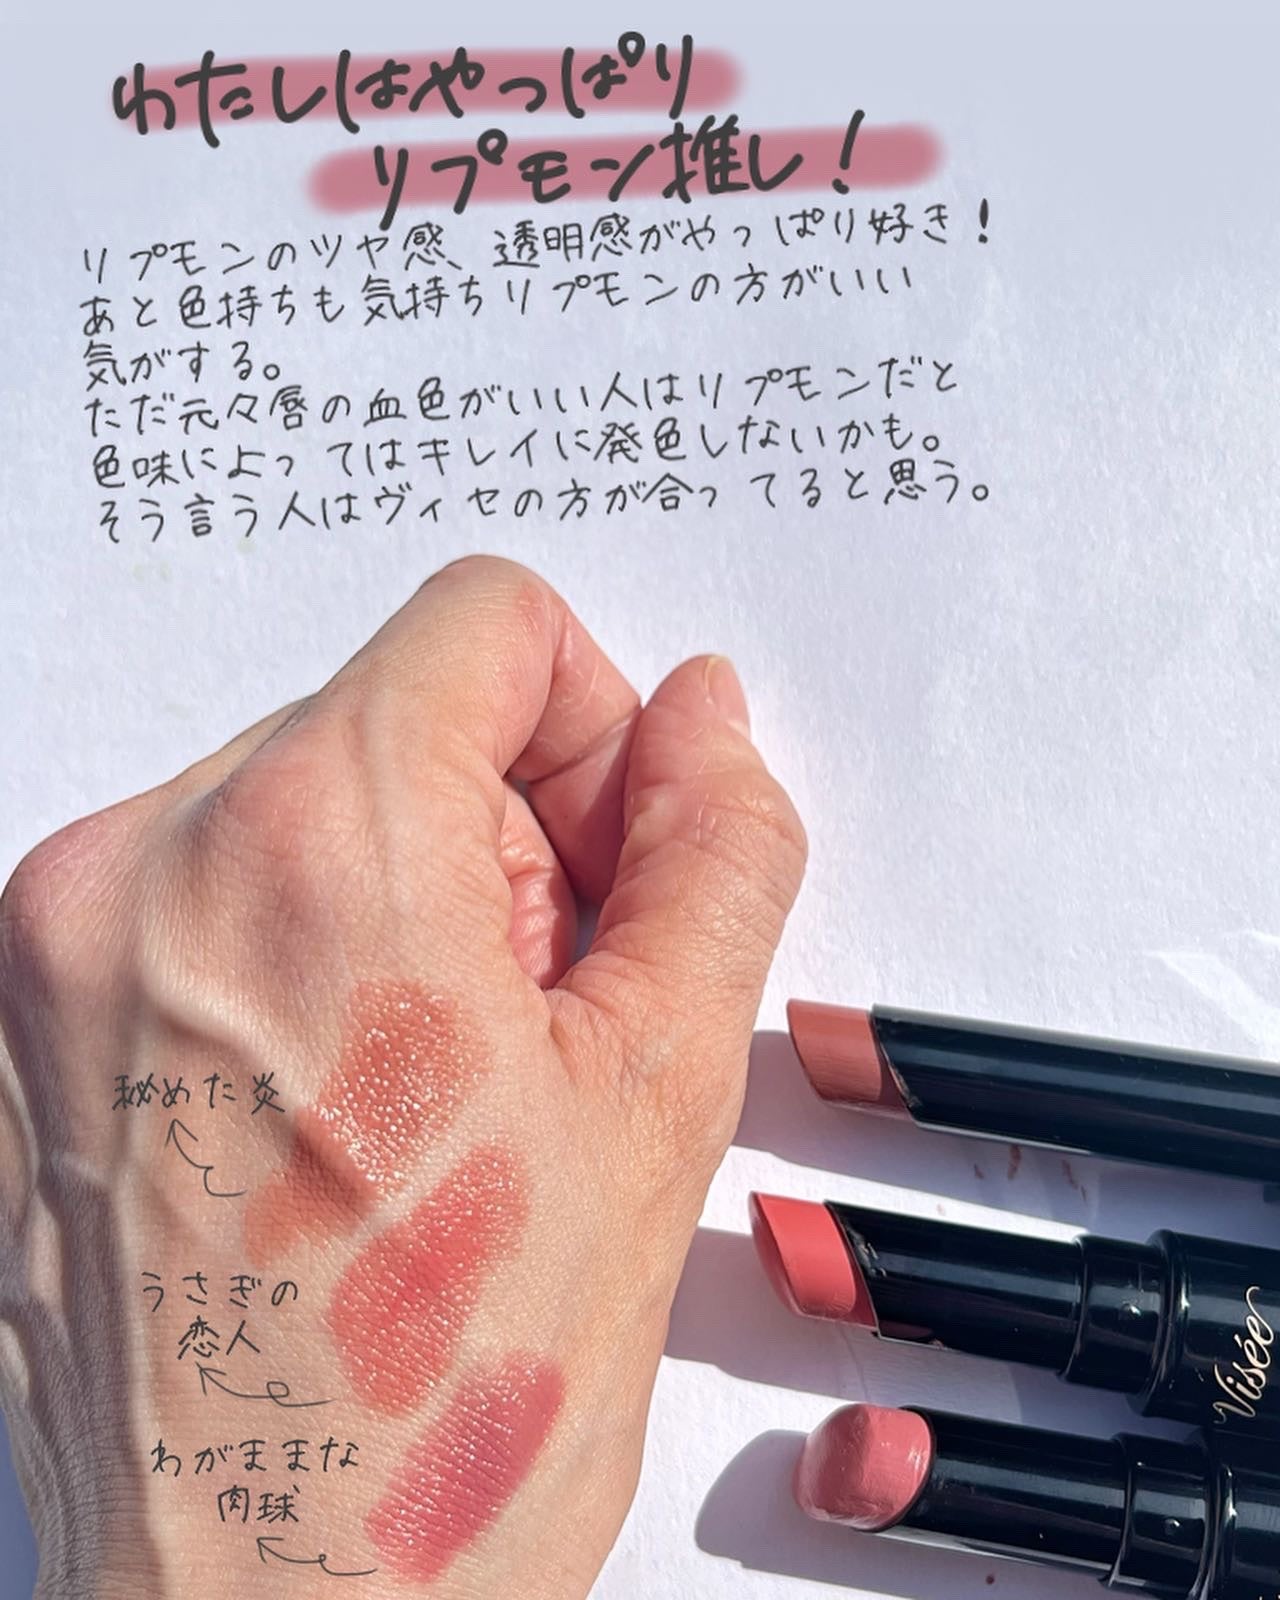 わたしはやっぱり
リプモン推し！
リプモンのツヤ感、透明感がやっぱり好き！
あと色持ちも気持ちリプモンの方がいい
気がする。
ただ元々唇の血色がいい人はリプモンだと
色味によってはキレイに発色しないかも。
そう言う人はヴィセの方が合ってると思う。
秘めた炎
うさぎの
恋人
わがままな
肉球
Visée